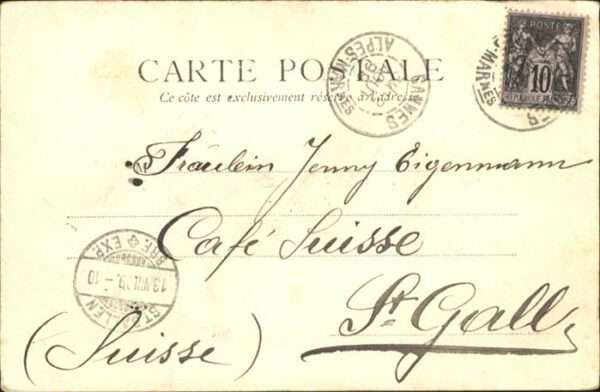 CARTE POSTALE
Ce côte est exclusivement réservé à l'adresse
POSTE
10
CANNES
ALPES-MARMES
Fräulein Jenny Eigenmann
Café Suisse
St. Gall
(Suisse)
ST. GALLEN
BRF. EXP.
13.VIII
10